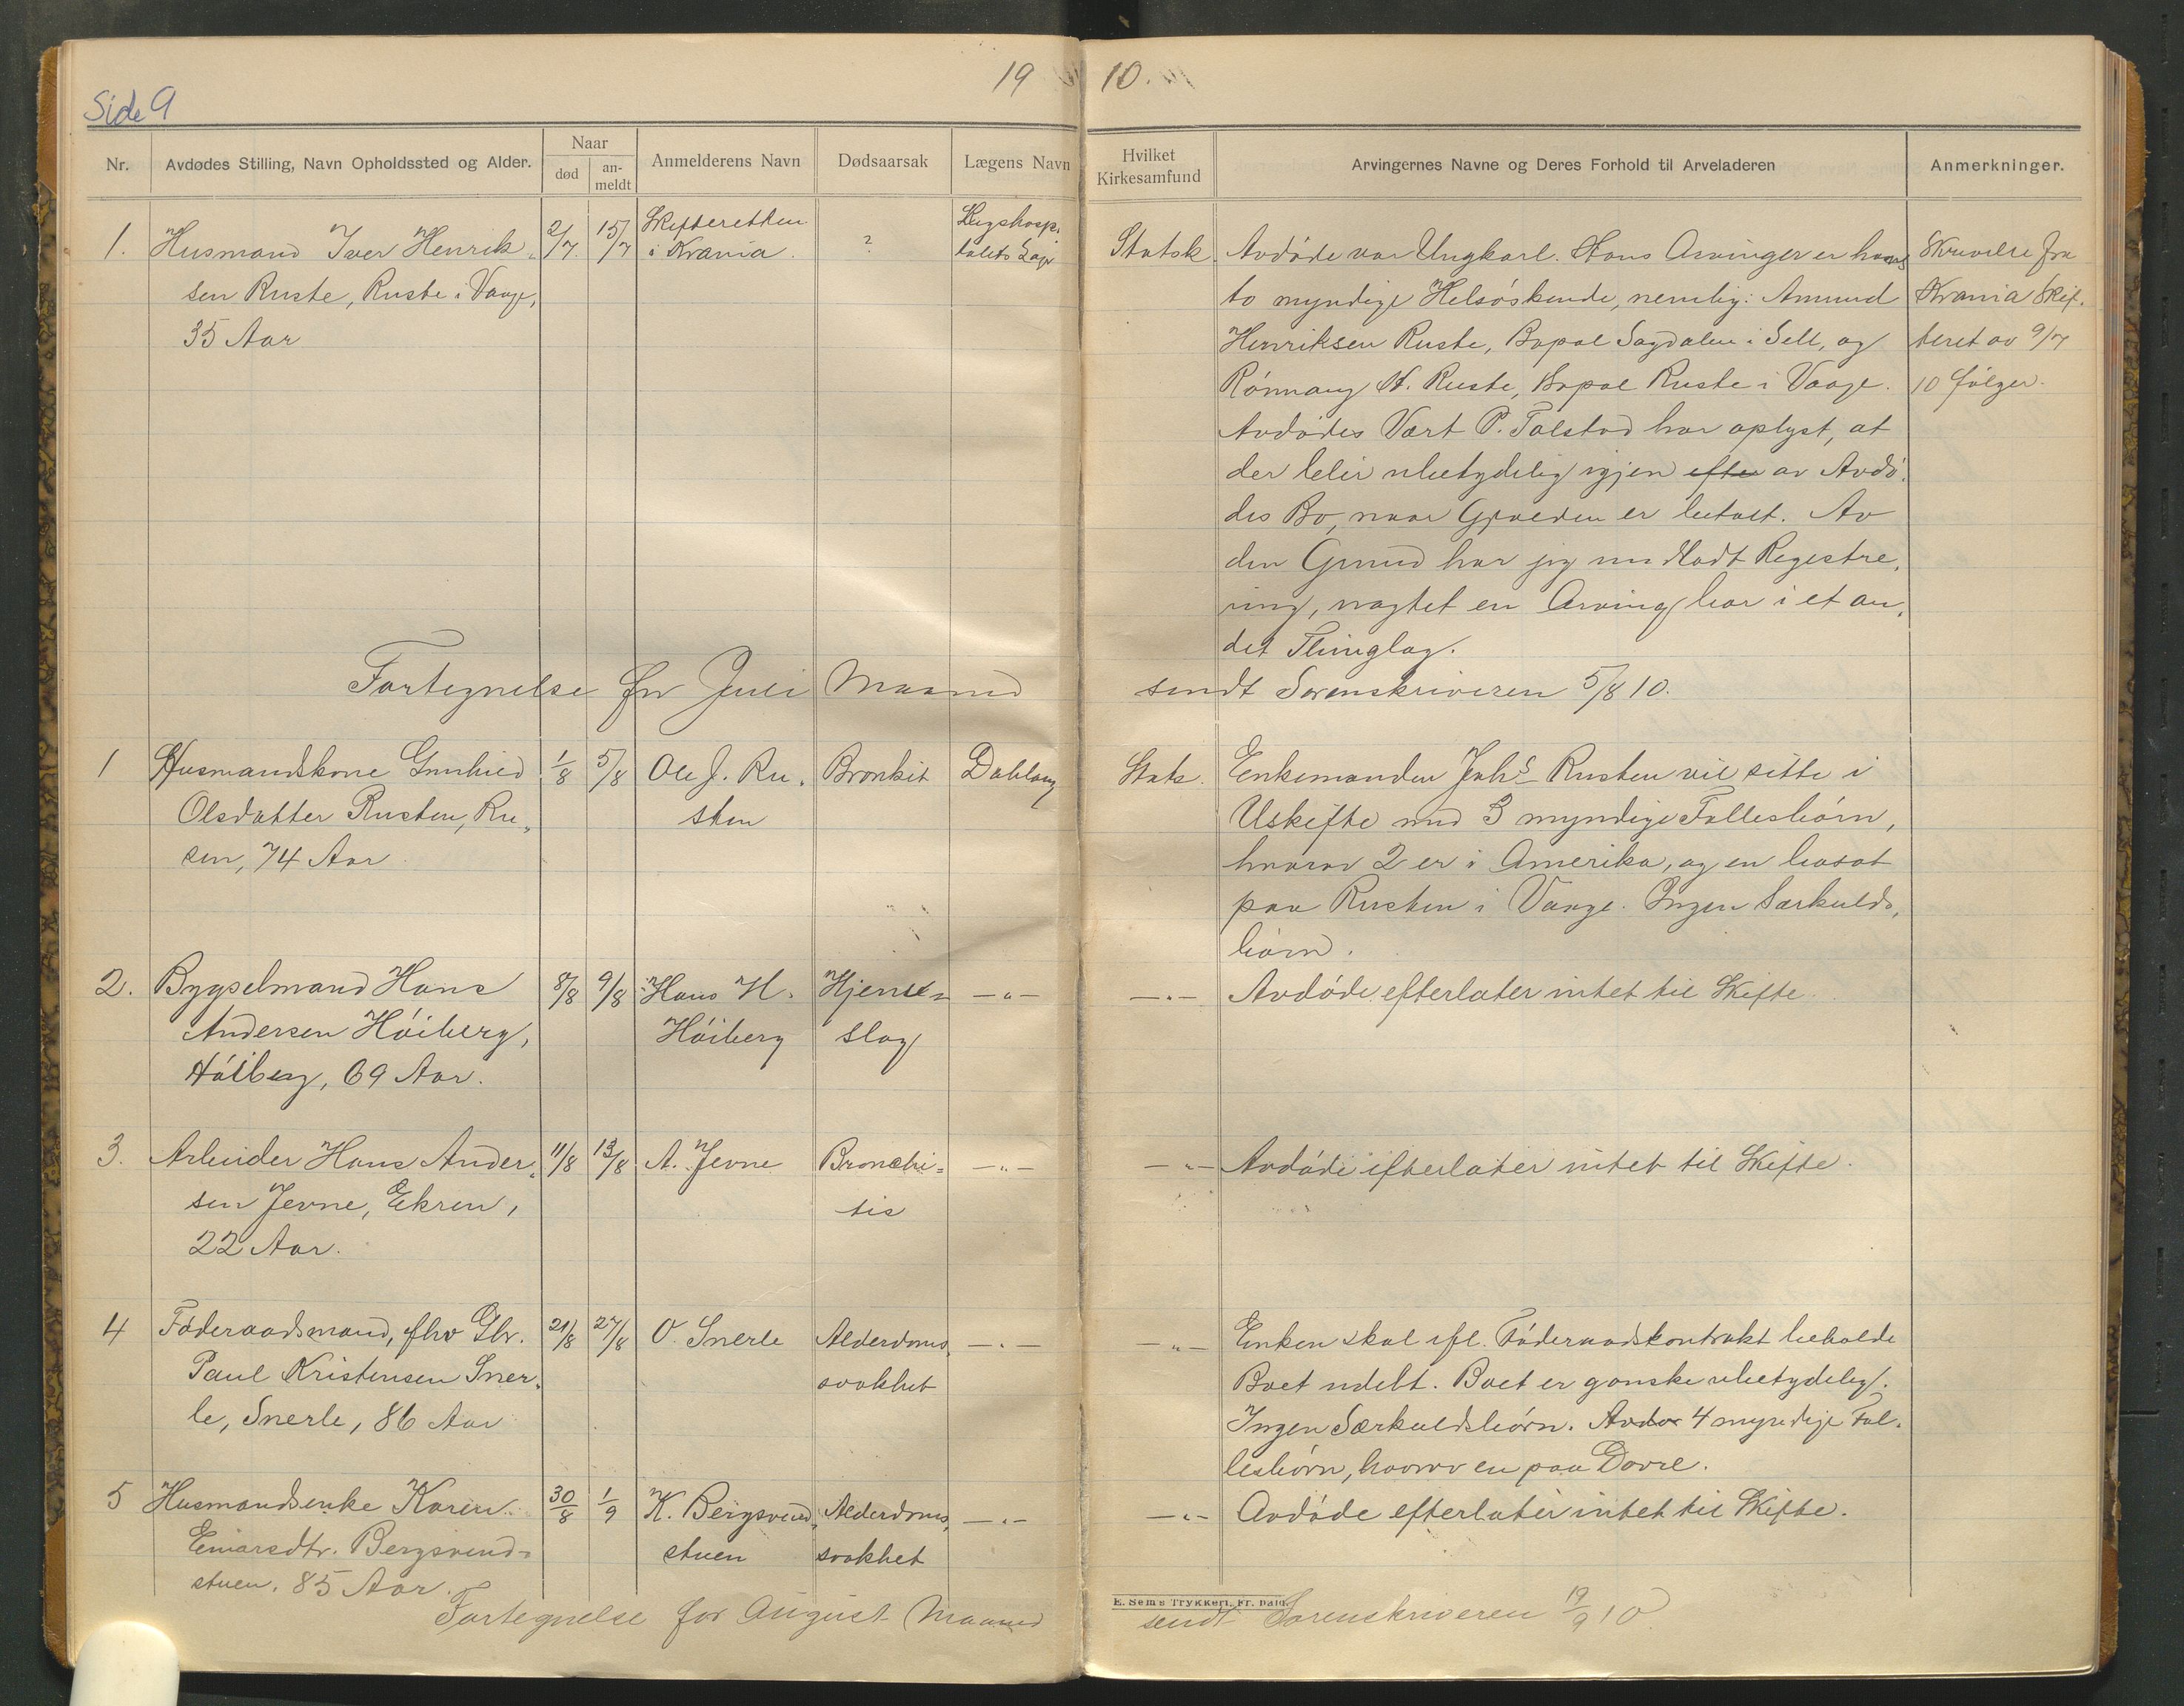 Side 9
19 10.
Nr.
Avdødes Stilling, Navn Opholdssted og Alder.
Naar
død
an-
meldt
Anmelderens Navn
Dødsaarsak
Lægens Navn
Hvilket
Kirkesamfund
Arvingernes Navne og Deres Forhold til Arveladeren
Anmerkninger.
1. Husmand Iver Henrik-
sen Ruste, Ruste i Vaage,
35 Aar
2/7 15/7
Skifteretten
i Krania.
?
Statsk.
Avdøde var Ungkarl. Hans Arvinger er hans
to myndige Helsøskende, nemlig: Amund
Henriksen Ruste, Bopæl Sagdalen i Sell, og
Rønnaug H. Ruste, Bopæl Ruste i Vaage.
Avdødes Vært P. Tolstad har oplyst, at
der blir ubetydelig igjen efter av Avdø-
des Bo, naar Gjælden er betalt. Av
den Grund har jeg undladt Registre-
ring, uagtet en Arving bor i et an-
det Thinglag.
Skrivelse fra
Krania Skif-
teret av 9/7
10 følger.
Fortegnelse for Juli Maaned sendt Sorenskriveren 5/8 10.
1 Husmandskone Gunhild
Olsdatter Rusten, Ru-
sen, 74 Aar
1/8 5/8
Ole J. Ru-
sten
Bronkit
Dahlaug
Stats.
Enkemanden Johs Rusten vil sitte i
Uskifte med 3 myndige Fællesbørn,
hvorav 2 er i Amerika, og en bosat
paa Rusten i Vaage. Ingen Særkulds-
børn.
2. Bygselmand Hans
Andersen Høiberg,
Høiberg, 69 Aar.
8/8 9/8
Hans H.
Høiberg
Hjerte-
slag
—"—
—"—
Avdøde efterlater intet til Skifte.
3. Arbeider Hans Ander-
sen Jevne, Ekren,
22 Aar.
11/8 13/8
A. Jevne
Bronchi-
tis
—"—
—"—
Avdøde efterlater intet til Skifte.
4 Føderaadsmand, fhv Gbr.
Paul Kristensen Sner-
le, Snerle, 86 Aar
21/8 27/8
O. Snerle
Alderdoms-
svakhet
—"—
—"—
Enken skal ifl. Føderaadskontrakt beholde
Boet udelt. Boet er ganske ubetydelig.
Ingen Særkuldsbørn. 4 myndige Fæl-
lesbørn, hvorav en paa Dovre.
5 Husmandsenke Karen
Einarsdtr. Bergsvend-
stuen, 85 Aar.
30/8 1/9
K. Bergsvend-
stuen
Alderdoms-
svakhet
—"—
—"—
Avdøde efterlater intet til Skifte.
E. Sems Trykkeri, Fr. hald.
Fortegnelse for August Maaned sendt Sorenskriveren 19/9 10